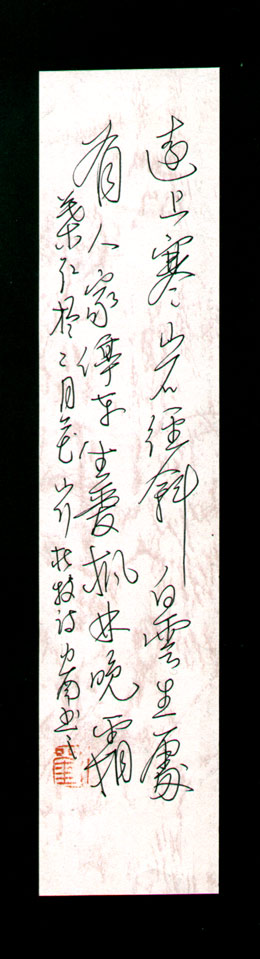 遠上寒山石徑斜白雲生處
有人家停車坐愛楓林晚霜
葉紅於二月花山行杜牧詩